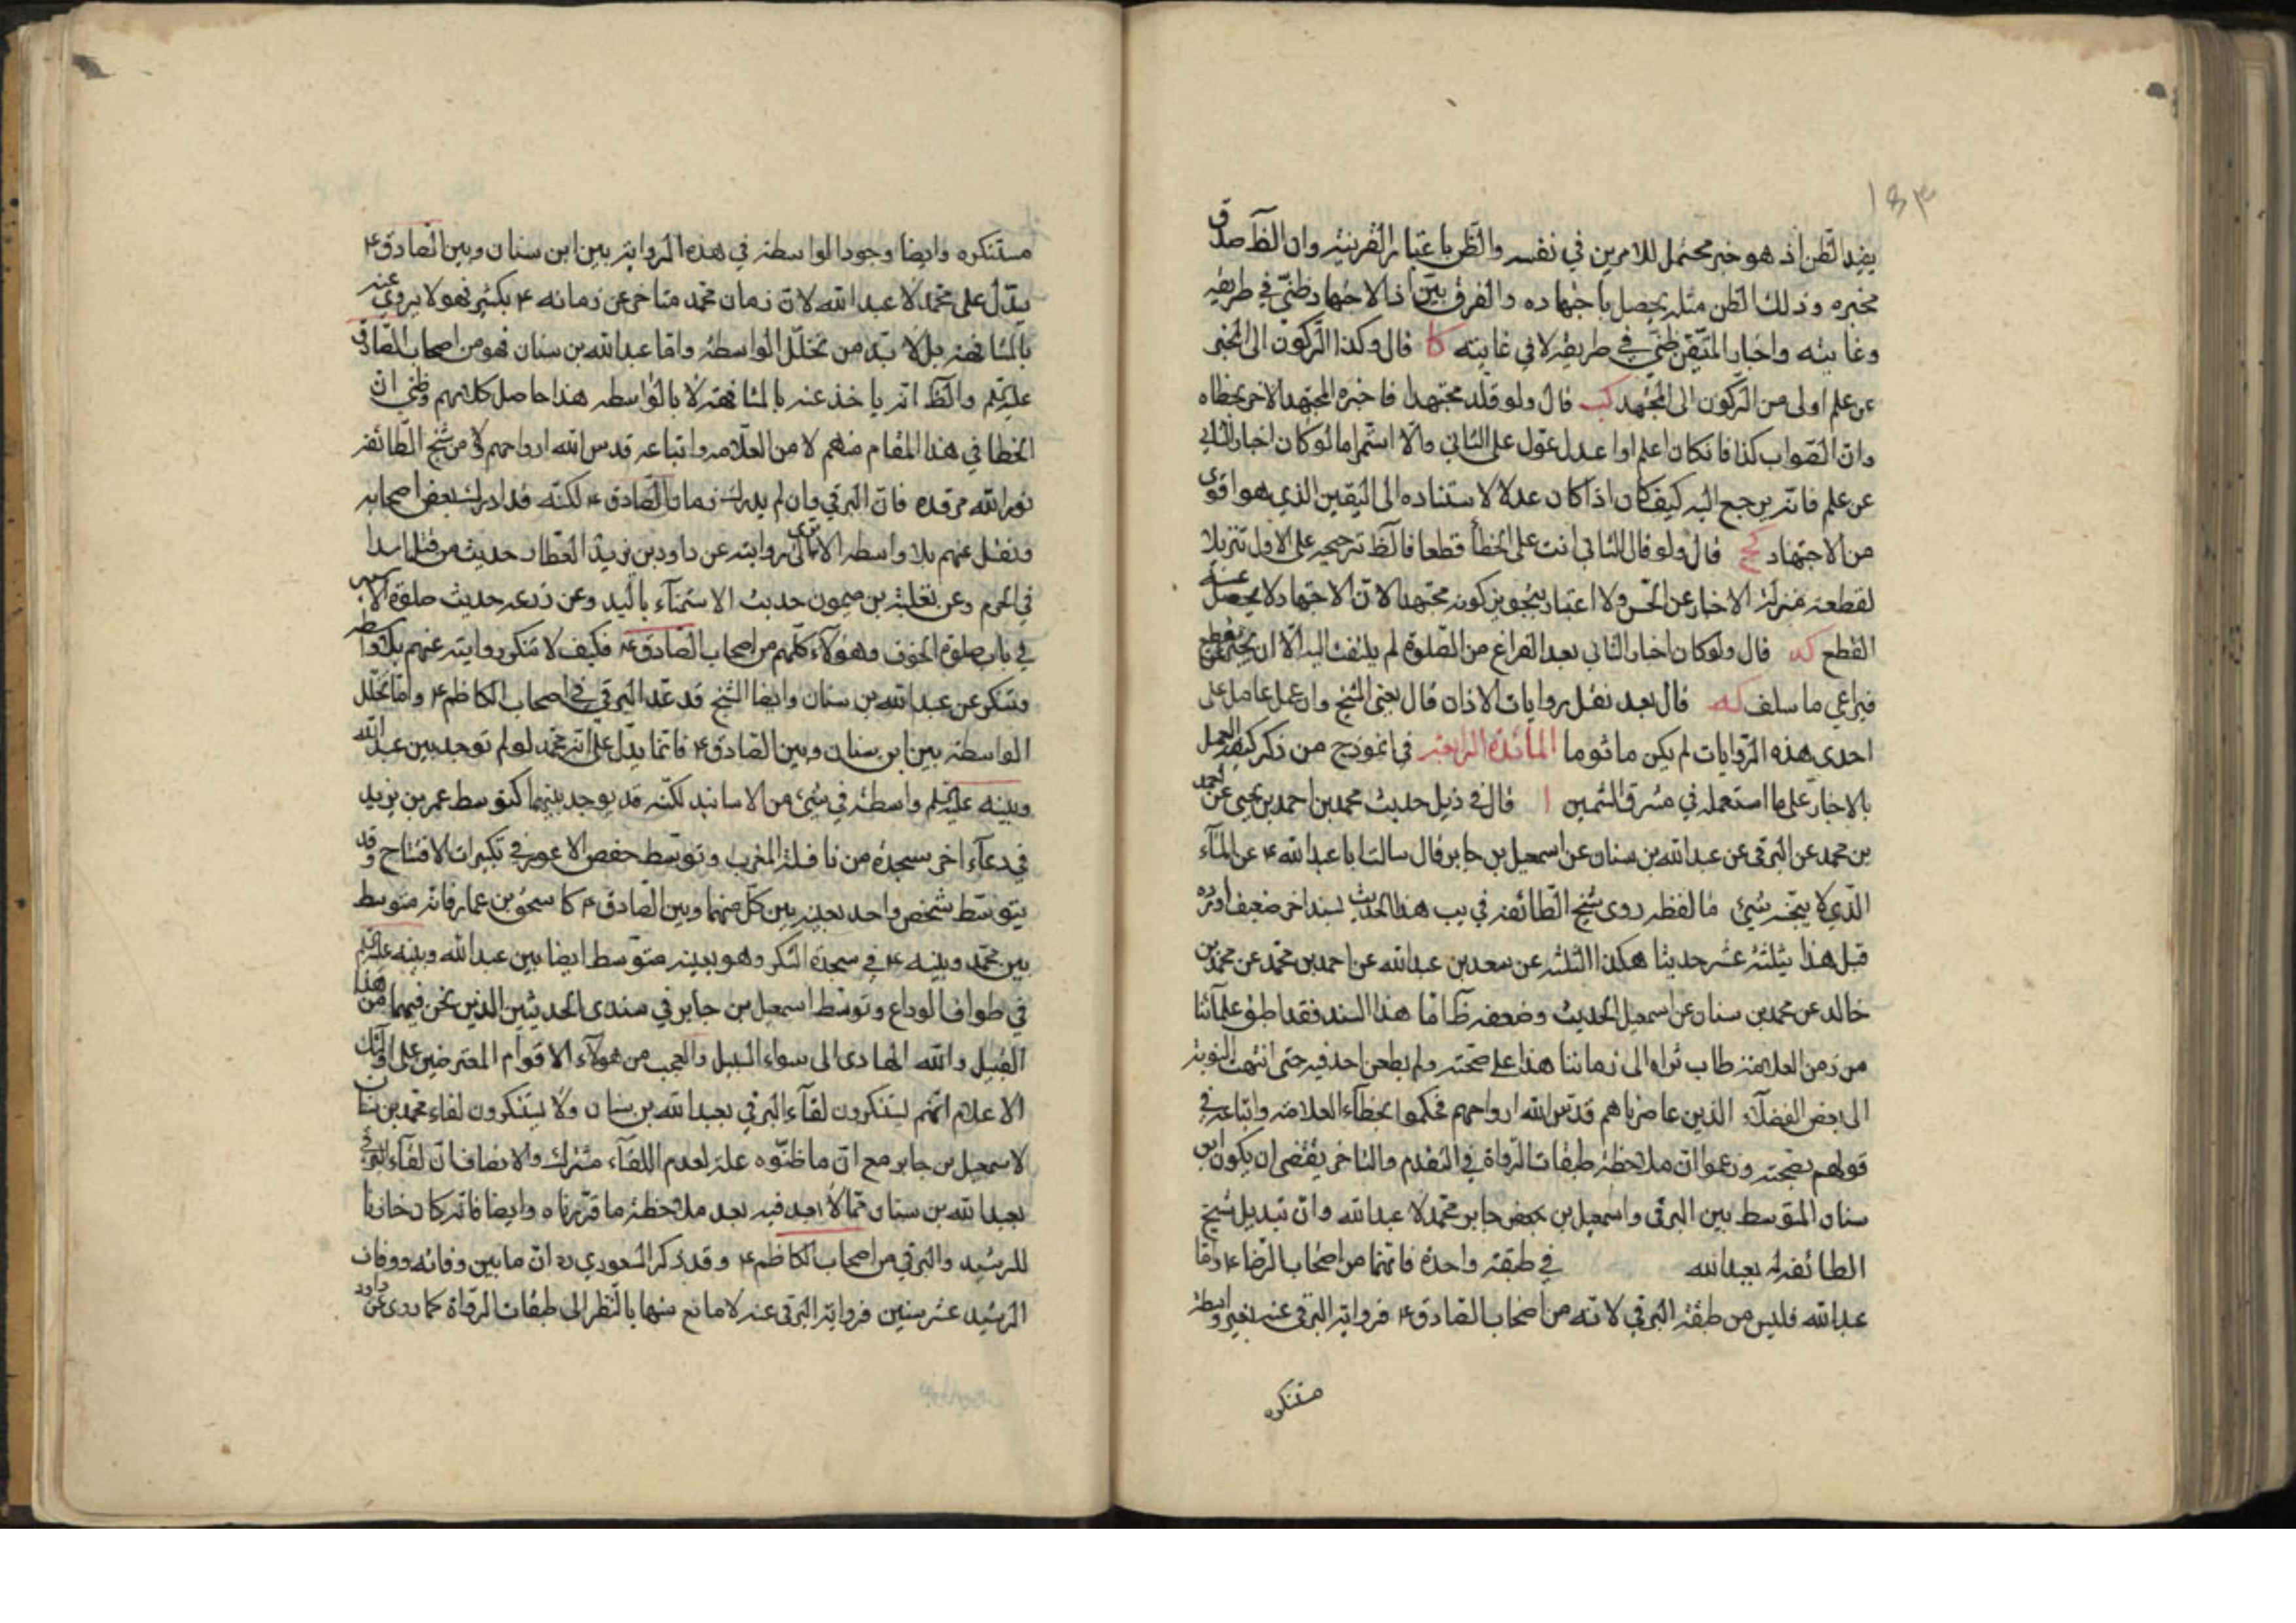 ١٥٣
يفيد الظن اذ هو خبر محتمل للامرين في نفسه والظن باعتبار القرينة وان الظ صدق
مخبره وذلك الظن مثله يحصل باجتهاده والفرق بين اذ الاجتهاد ظني في طريقه
وغايته واخبار المتيقن ظني في طريقه لا في غايته كا قال وكذا الركون الى المخبر
عن علم اولى من الركون الى المجتهد كب قال ولو قلد مجتهدا فاخبره المجتهد الاخر بخطاه
وان الصواب كذا فان كان اعلم او اعدل عول على الثاني والا استمر اما لو كان اخبار الثاني
عن علم فانه يرجع اليه كيف كان اذا كان عدلا لاستناده الى اليقين الذي هو اقوى
من الاجتهاد كج قال ولو قال الثاني انت على الخطأ قطعا فالظ ترجيحه على الاول تنزيلا
لقطعه منزلة الاخبار عن الحس ولا اعتبار بتجويز كونه مجتهدا لان الاجتهاد لا يحصل عنه
القطع كد قال ولو كان اخبار الثاني بعد الفراغ من الصلوة لم يلتفت اليه الا ان يخبر عن قطع
فيراعي ما سلف كه قال بعد نقل روايات الاذان قال يعني الشيخ وان عمل عامل على
احدى هذه الروايات لم يكن ماثوما المائدة الرابعة في انموذج من ذكر كيفية العمل
بالاخبار على ما استعمله في مشرق الشمسين ا قال في ذيل حديث محمد بن احمد بن يحيى عن احمد
بن محمد عن البرقي عن عبدالله بن سنان عن اسمعيل بن جابر قال سالت ابا عبدالله ع عن الماء
الذي لا ينجسه شيئ ما لفظه روى شيخ الطائفة في يب هذا الحديث بسند اخر ضعيف اورده
قبل هذا بثلثة عشر حديثا هكذا الثلثة عن سعد بن عبدالله عن احمد بن محمد عن محمد بن
خالد عن محمد بن سنان عن اسمعيل الحديث وضعفه ظ اما هذا السند فقد اطبق علماؤنا
من زمن العلامة طاب ثراه الى زماننا هذا على صحته ولم يطعن احد فيه حتى انتهت النوبة
الى بعض الفضلاء الذين عاصرناهم قدس الله ارواحهم فحكموا بخطاء العلامة واتباعه في
قولهم بصحته وزعموا ان ملاحظة طبقات الرواة في التقدم والتاخر يقتضي ان يكون ابن
سنان المتوسط بين البرقي واسمعيل بن جابر محمد لا عبدالله وان تبديل شيخ
الطائفة له بعبدالله في طبقة واحدة فانهما من اصحاب الرضا ع واما
عبدالله فليس من طبقة البرقي لانه من اصحاب الصادق ع فرواية البرقي عنه بغير واسطة
مستنكره
مستنكره وايضا وجود الواسطة في هذه الرواية بين ابن سنان وبين الصادق ع
يدل على محمد لا عبدالله لان زمان محمد متاخر عن زمانه ع بكثير فهو لا يروي عنه
بالمشافهة بل لا بد من تخلل الواسطة واما عبدالله بن سنان فهو من اصحاب الصادق
عليه السلم والظ انه ياخذ عنه بالمشافهة لا بالواسطه هذا حاصل كلامهم وظني ان
الخطا في هذا المقام منهم لا من العلامه واتباعه قدس الله ارواحهم ولا من شيخ الطائفة
نور الله مرقده فان البرقي وان لم يدرك زمان الصادق ع لكنه قد ادرك بعض اصحابه
ونقل عنهم بلا واسطه الا ترى الى روايته عن داود بن يزيد العطار حديث من قتل اسدا
في الحرم وعن ثعلبة بن ميمون حديث الاستمناء باليد وعن زرعه حديث صلوة الاسير
في باب صلوة الخوف وهؤلاء كلهم من اصحاب الصادق ع فكيف لا تنكر روايته عنهم بلا واسطه
وتنكر عن عبدالله بن سنان وايضا الشيخ قد عد البرقي في اصحاب الكاظم ع واما تخلل
الواسطة بين ابن سنان وبين الصادق ع فانما يدل على انه محمد لو لم توجد بين عبدالله
وبينه عليه السلم واسطة في شيئ من الاسانيد لكنه قد يوجد بينهما كتوسط عمر بن يزيد
في دعاء اخر سجدة من نافلة المغرب وتوسط حفص الاعور في تكبيرات الافتتاح وقد
يتوسط شخص واحد بعينه بين كل منهما وبين الصادق ع كاسحق بن عمار فانه متوسط
بين محمد وبينه ع في سجدة الشكر وهو بعينه متوسط ايضا بين عبدالله وبينه عليه السلم
في طواف الوداع وتوسط اسمعيل بن جابر في سندي الحديثين الذين نحن فيهما من هذا
القبيل والله الهادى الى سواء السبيل والعجب من هؤلاء الاقوام المعترضين على اولئك
الاعلام انهم يستنكرون لقاء البرقي بعبدالله بن سنان ولا يستنكرون لقاء محمد بن سنان
لاسمعيل بن جابر مع ان ما ظنوه علة لعدم اللقاء مشترك والانصاف ان لقاء البرقي
بعبدالله بن سنان مما لا بعد فيه بعد ملاحظة ما قررناه وايضا فانه كان خازنا
للرشيد والبرقي من اصحاب الكاظم ع وقد ذكر المسعودي ره ان ما بين وفاته ووفات
الرشيد عشر سنين فرواية البرقي عنه لا مانع منها بالنظر الى طبقات الرواة كما روى عن داود